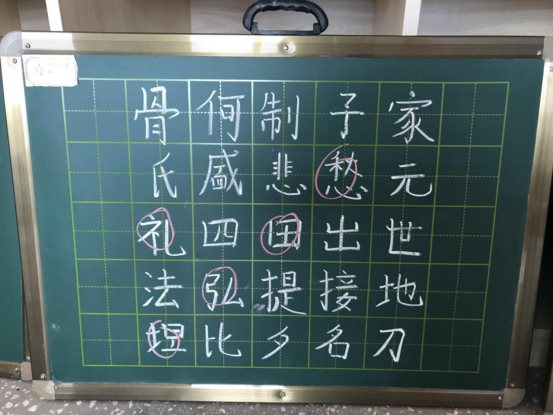 骨何制子家
氏盛悲愁元
礼四田出世
法弘提接地
比夕名刀